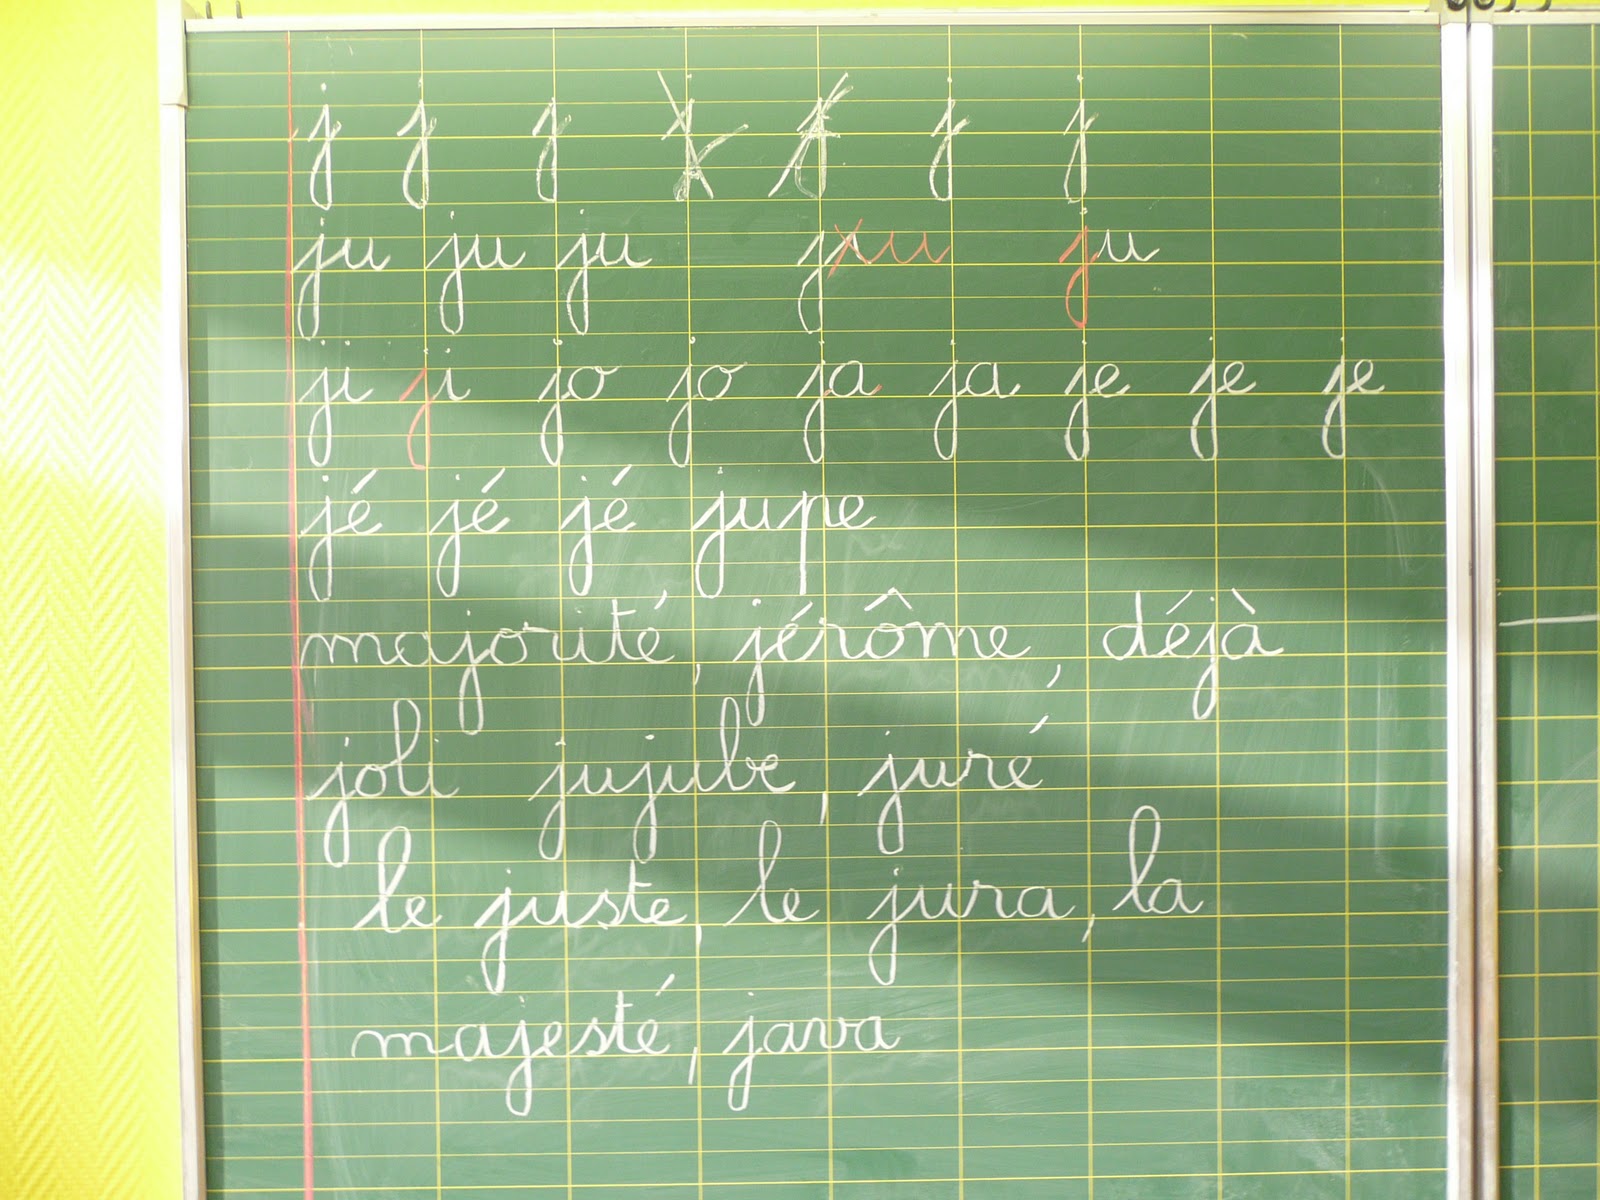 j j j j j j j
ju ju ju ju ju
ji ji jo jo ja ja je je je
jé jé jé jupe
majorité, jérôme, déjà
joli jujube, juré
le juste, le jura, la
majesté, java